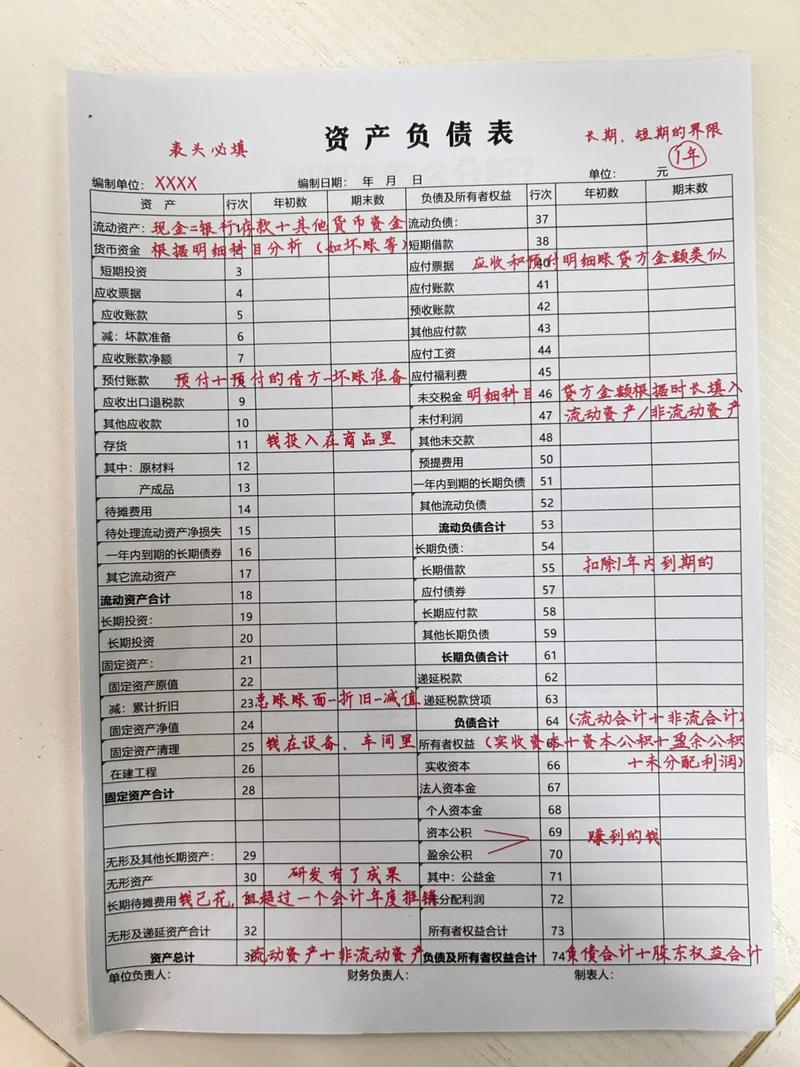 资产负债表
表头必填
长期、短期的界限
1年
编制单位：XXXX 编制日期： 年 月 日 单位： 元
资 产 行次 年初数 期末数 负债及所有者权益 行次 年初数 期末数
流动资产：现金=银行存款+其他货币资金 流动负债： 37
货币资金 根据明细科目分析（如坏账等） 短期借款 38
短期投资 3 应付票据 40 应收和预付明细账贷方金额类似
应收票据 4 应付账款 41
应收账款 5 预收账款 42
减：坏款准备 6 其他应付款 43
应收账款净额 7 应付工资 44
预付账款 预付+预付的借方-坏账准备 应付福利费 45
应收出口退税款 9 未交税金 明细科目 46 贷方金额根据时长填入
其他应收款 10 未付利润 47 流动资产/非流动资产
存货 11 钱投入在商品里 其他未交款 48
其中：原材料 12 预提费用 50
产成品 13 一年内到期的长期负债 51
待摊费用 14 其他流动负债 52
待处理流动资产净损失 15 流动负债合计 53
一年内到期的长期债券 16 长期负债： 54
其它流动资产 17 长期借款 55 扣除1年内到期的
流动资产合计 18 应付债券 57
长期投资： 19 长期应付款 58
长期投资 20 其他长期负债 59
固定资产： 21 长期负债合计 61
固定资产原值 22 递延税款 62
减：累计折旧 23 总账账面-折旧-减值 递延税款贷项 63
固定资产净值 24 负债合计 64 （流动合计+非流合计）
固定资产清理 25 钱在设备、车间里 所有者权益 （实收资本+资本公积+盈余公积
+未分配利润）
在建工程 26 实收资本 66
固定资产合计 28 法人资本金 67
个人资本金 68
资本公积 69 赚到的钱
无形及其他长期资产： 29 盈余公积 70
无形资产 30 研发有了成果 其中：公益金 71
长期待摊费用 钱已花，但超过一个会计年度摊销 分配利润 72
无形及递延资产合计 32 所有者权益合计 73
资产总计 3 流动资产+非流动资产 负债及所有者权益合计 74 负债合计+股东权益合计
单位负责人： 财务负责人： 制表人：